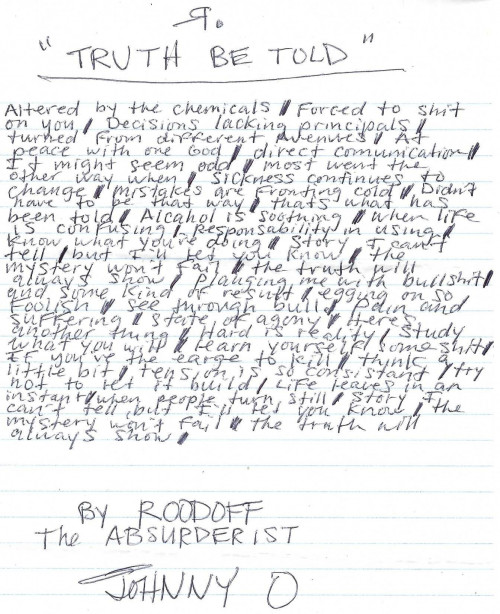 Я.
"TRUTH BE TOLD"
Altered by the chemicals / Forced to shit
on you / Decisions lacking principals /
turned from different avenues / At
peace with one God / direct comunication /
It might seem odd / most went the
other way when / sickness continues to
change / mistakes are fronting cold / Didn't
have to be that way / thats what has
been told / Alcahol is soothing / when life
is confusing / Responsability in using /
Know what you're doing / Story I can't
tell / but I'll let you know / the
mystery won't fail / the truth will
always show / Plauging me with bullshit /
and some kind of result / egging on so
foolish / see through bull / pain and
suffering / state of agony / Heres
another thing / Hard is reality / Study
what you will / Learn yourself some shit /
If you've the earge to kill / think a
little bit / tension is so consistant / try
not to let it build / Life leaves in an
instant / when people turn still / Story I
can't tell but I'll let you know / the
mystery won't fail / the truth will
always show /
By ROODOFF
The ABSURDERIST
JOHNNY O